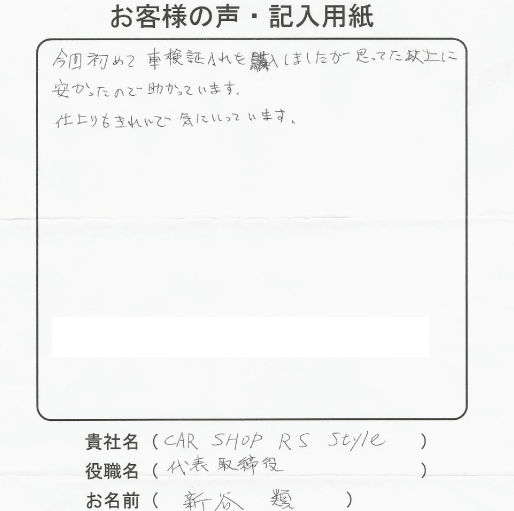 お客様の声・記入用紙
今回初めて車検証入れを購入しましたが思ってた以上に
安かったので助かっています。
仕上りもきれいで気にいっています。
貴社名（CAR SHOP RS Style）
役職名（代表取締役）
お名前（新谷　）